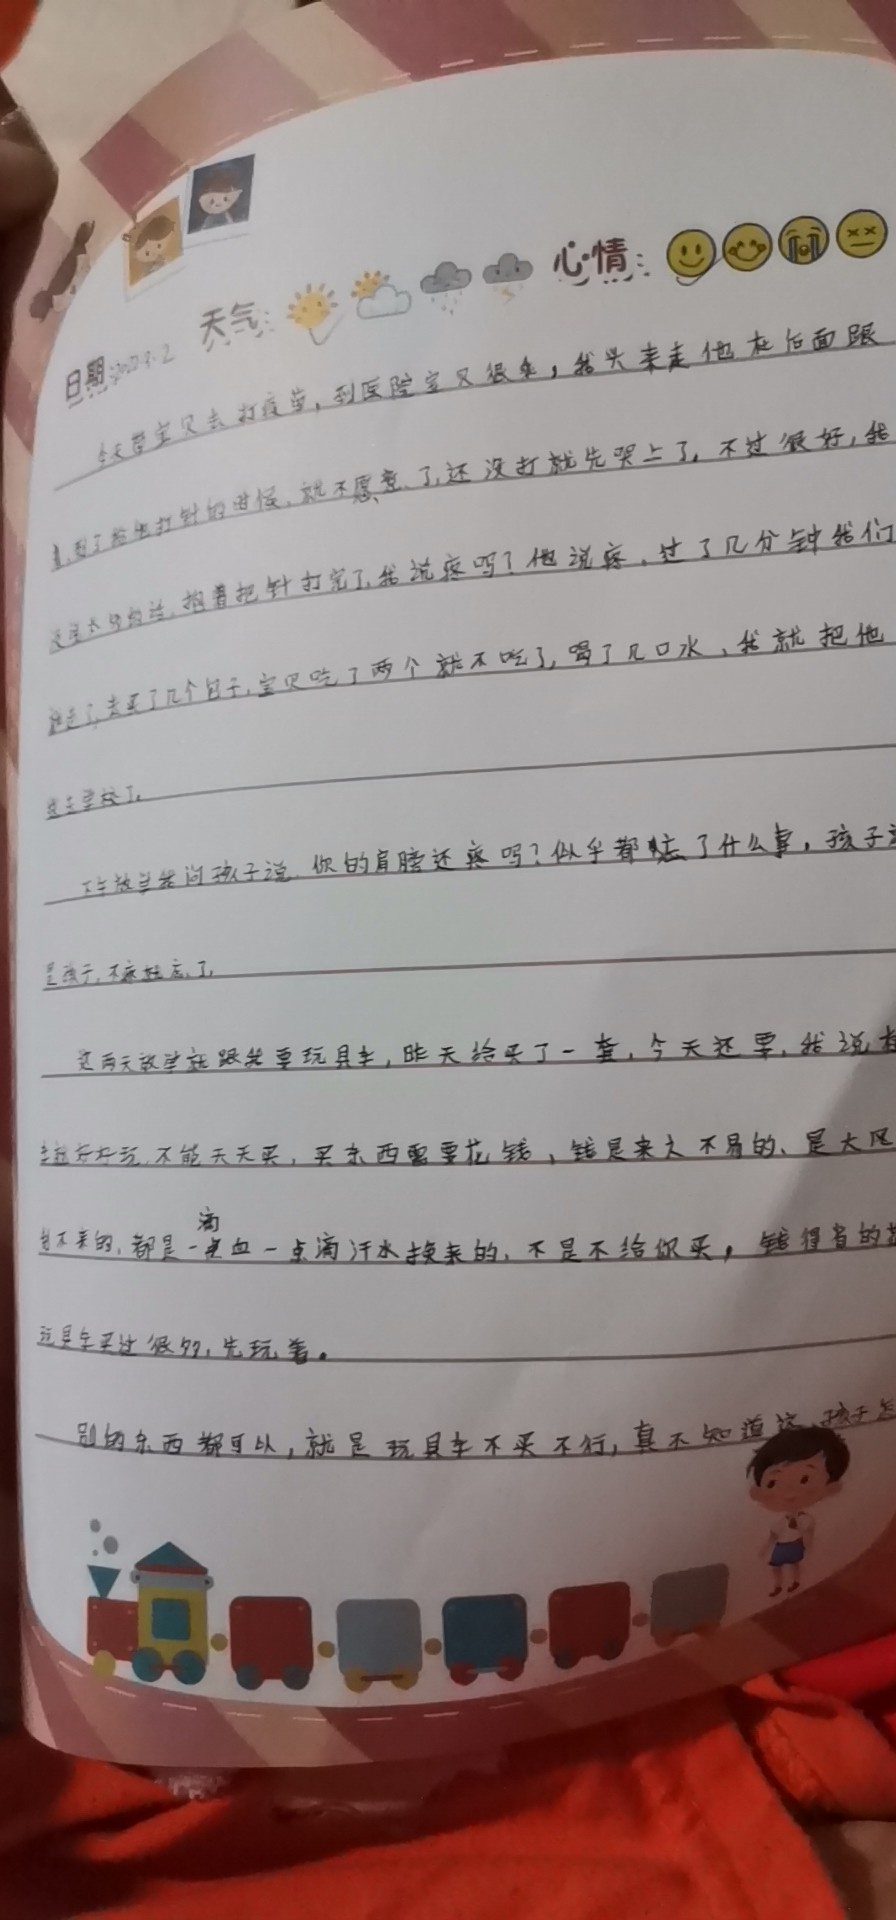 天气: 心情:
日期:
今天带宝贝去打疫苗,到医院宝贝很乖,我头来走他在后面跟
着,到了给他打针的时候,就不愿意了,还没打就先哭上了,不过很好,我
抱着把针打完了,我说疼吗?他说疼,过了几分钟我们
就走了,去买了几个包子,宝贝吃了两个就不吃了,喝了几口水,我就把他
送去学校了。
下午放学我问孩子说,你的肩膀还疼吗?似乎都忘了什么事,孩子
是孩子,不疼就忘了。
这两天放学就跟我要玩具车,昨天给买了一套,今天还要,我说
好好玩,不能天天买,买东西需要花钱,钱是来之不易的、是大风
刮不来的,都是一滴血一点滴汗水换来的,不是不给你买,钱得省的
玩具车买过很多,先玩着。
别的东西都可以,就是玩具车不买不行,真不知道这孩子怎